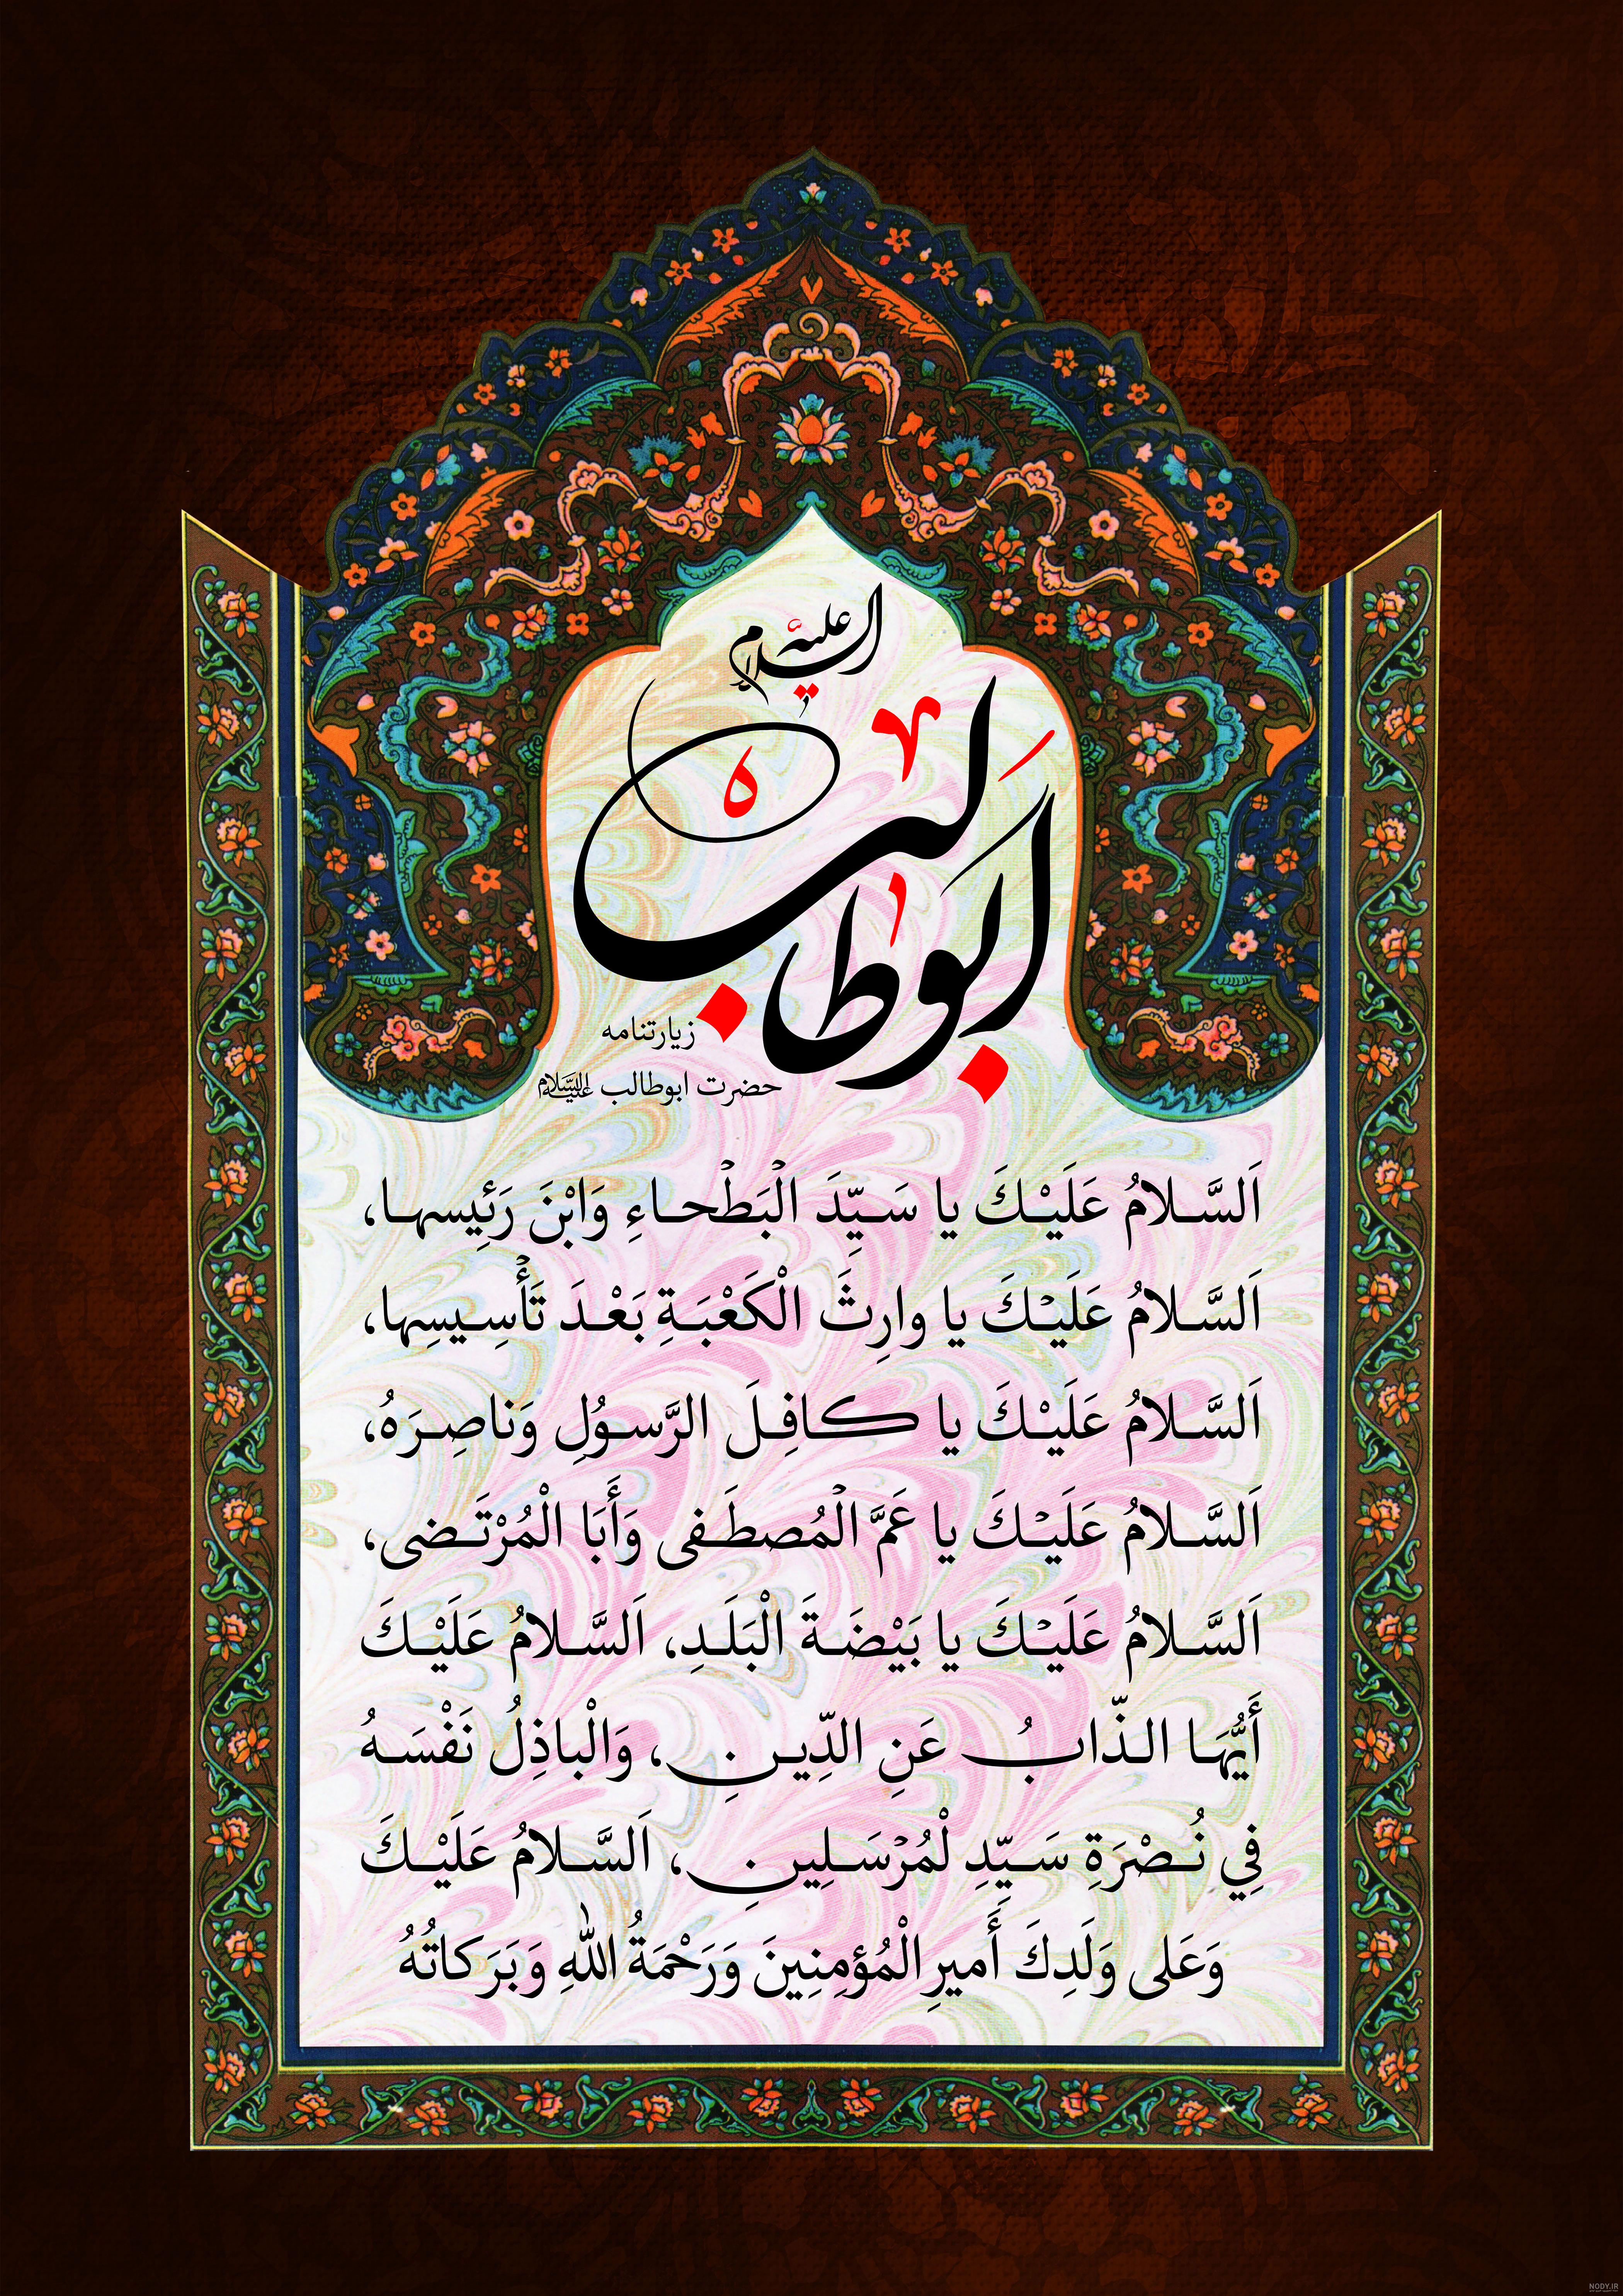 علیه السلام
ابوطالب
زیارتنامه
حضرت ابوطالب علیه‌السلام
اَلسَّـلامُ عَلَيْـكَ يا سَـيِّدَ الْبَطْحـاءِ وَابْنَ رَئِيسهـا،
اَلسَّـلامُ عَلَيْـكَ يا وارِثَ الْكَعْبَـةِ بَعْـدَ تَأْسِـيسِها،
اَلسَّـلامُ عَلَيْـكَ يا كافِـلَ الرَّسـوُلِ وَناصِـرَهُ،
اَلسَّـلامُ عَلَيْـكَ يا عَمَّ الْمُصطَـفى وَأَبَا الْمُرْتَـضى،
اَلسَّـلامُ عَلَيْـكَ يا بَيْضَـةَ الْبَلَـدِ، اَلسَّـلامُ عَلَيْـكَ
أَيُّهَـا الـذّابُ عَنِ الدِّيـنِ، وَالْباذِلُ نَفْسَـهُ
فِي نُـصْرَةِ سَـيِّدِ لْمُرْسَـلِينِ، اَلسَّـلامُ عَلَيْـكَ
وَعَلى وَلَدِكَ أَميرِ الْمُؤمِنِينَ وَرَحْمَةُ اللهِ وَبَرَكاتُهُ
NODY.IR